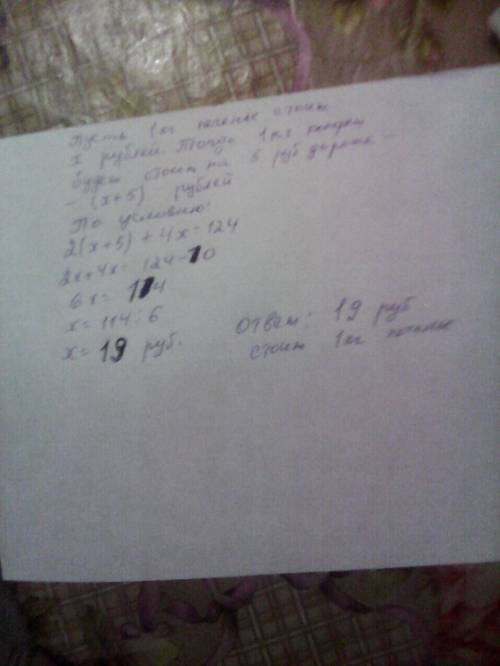 Пусть 1кг печенье стоит
x рублей. Тогда 1кг конфет
будет стоит на 5 руб дороже –
– (x+5) рублей
По условию:
2(x+5) + 4x = 124
2x+4x= 124-10
6x= 114
x= 114:6
x= 19 руб.
ответ: 19 руб
стоит 1кг печенье